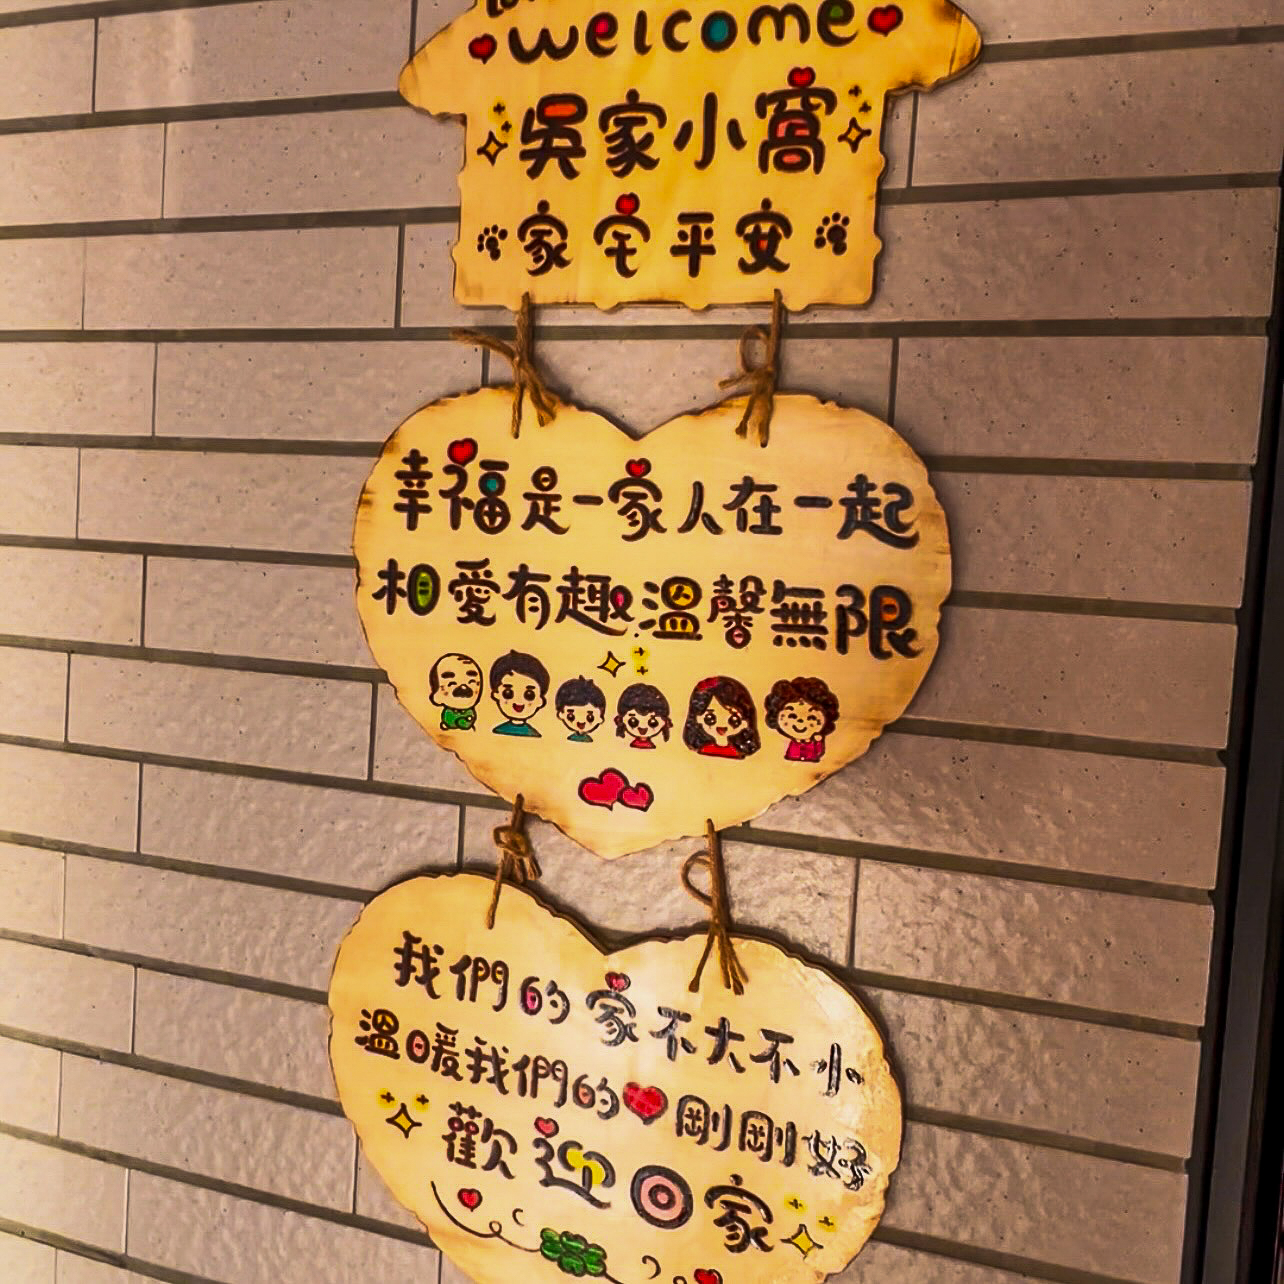 welcome
吳家小窩
家宅平安
幸福是一家人在一起
相愛有趣溫馨無限
我們的家不大不小
溫暖我們的❤剛剛好
歡迎回家